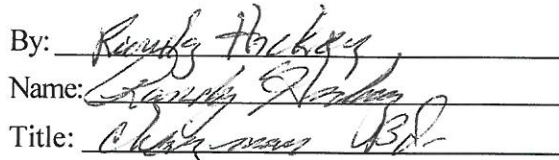 By: Randy Hickey
Name: Randy Hickey
Title: Chairman Bd.